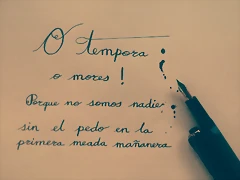 O tempora
o mores !
Porque no somos nadie
sin el pedo en la
primera meada mañanera